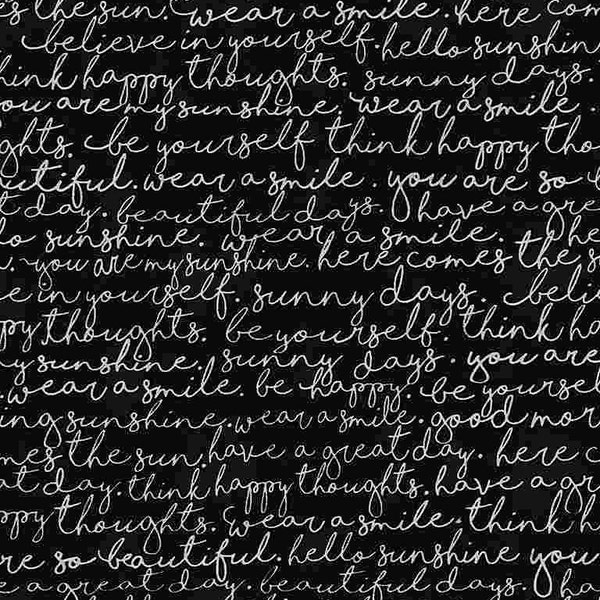 s the sun. wear a smile. here com
believe in yourself. hello sunshin
hink happy thoughts. sunny days.
ou are my sunshine. wear a smile.
ghts. be yourself think happy tho
utiful. wear a smile. you are so b
t day. beautiful days. have a grea
lo sunshine. wear a smile. I he
. you are my sunshine. here comes the s
e in yourself. sunny days. beli
py thoughts. be yourself. think ha
y sunshine. sunny days. you are
wear a smile. be happy. be yoursel
ing sunshine. wear a smile. good mor
mes the sun. have a great day. here c
at day. think happy thoughts. have a gr
ppy thoughts. wear a smile. think h
re so beautiful. hello sunshine you
e a great day. beautiful days. have